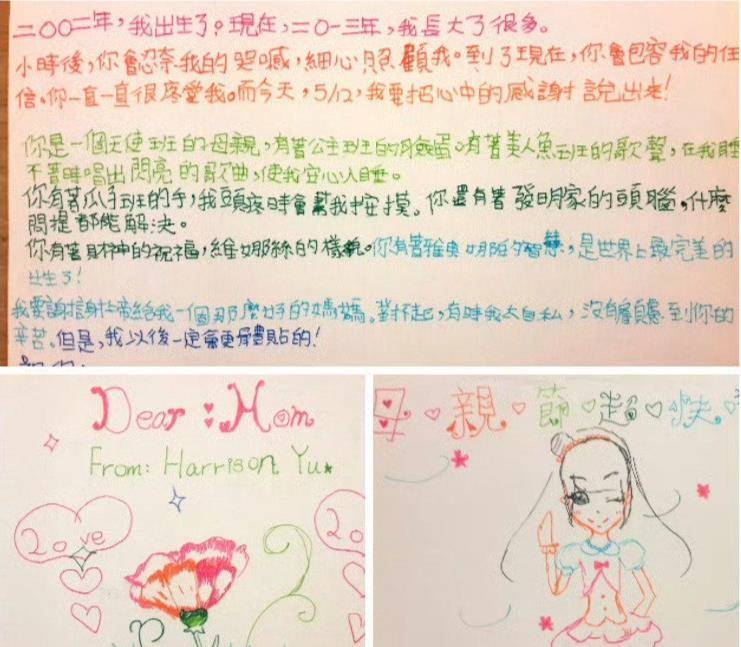 二〇〇二年，我出生了。現在，二〇一三年，我長大了很多。
小時後，你會忍奈我的哭喊，細心照顧我。到了現在，你會包容我的任
信。你一直一直很疼愛我。而今天，5/12，我要把心中的感謝說出來！
你是一個天使班的母親，有著公主班的臉蛋。有著美人魚班的歌聲，在我睡
不著時唱出閃亮的歌曲，使我安心入睡。
你有著瓜子班的手，我頭疼時會幫我按摸。你還有著發明家的頭腦，什麼
問提都能解決。
你有著財神的祝福，維娜絲的樣貌。你有著雅典娜的智慧，是世界上最完美的
出生了！
我要謝謝上帝給我一個那麼好的媽媽。對不起，有時我太自私，沒有顧慮到你的
辛苦。但是，我以後一定會更體貼的！
Dear : Mom
From: Harrison Yu
Love
Lo
母親節超快